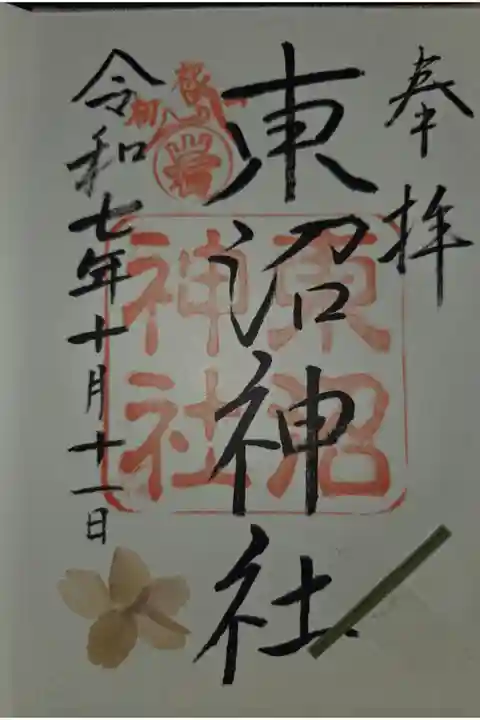 奉拝
東沼神社
東沼
神社
岩
令和七年十月十一日